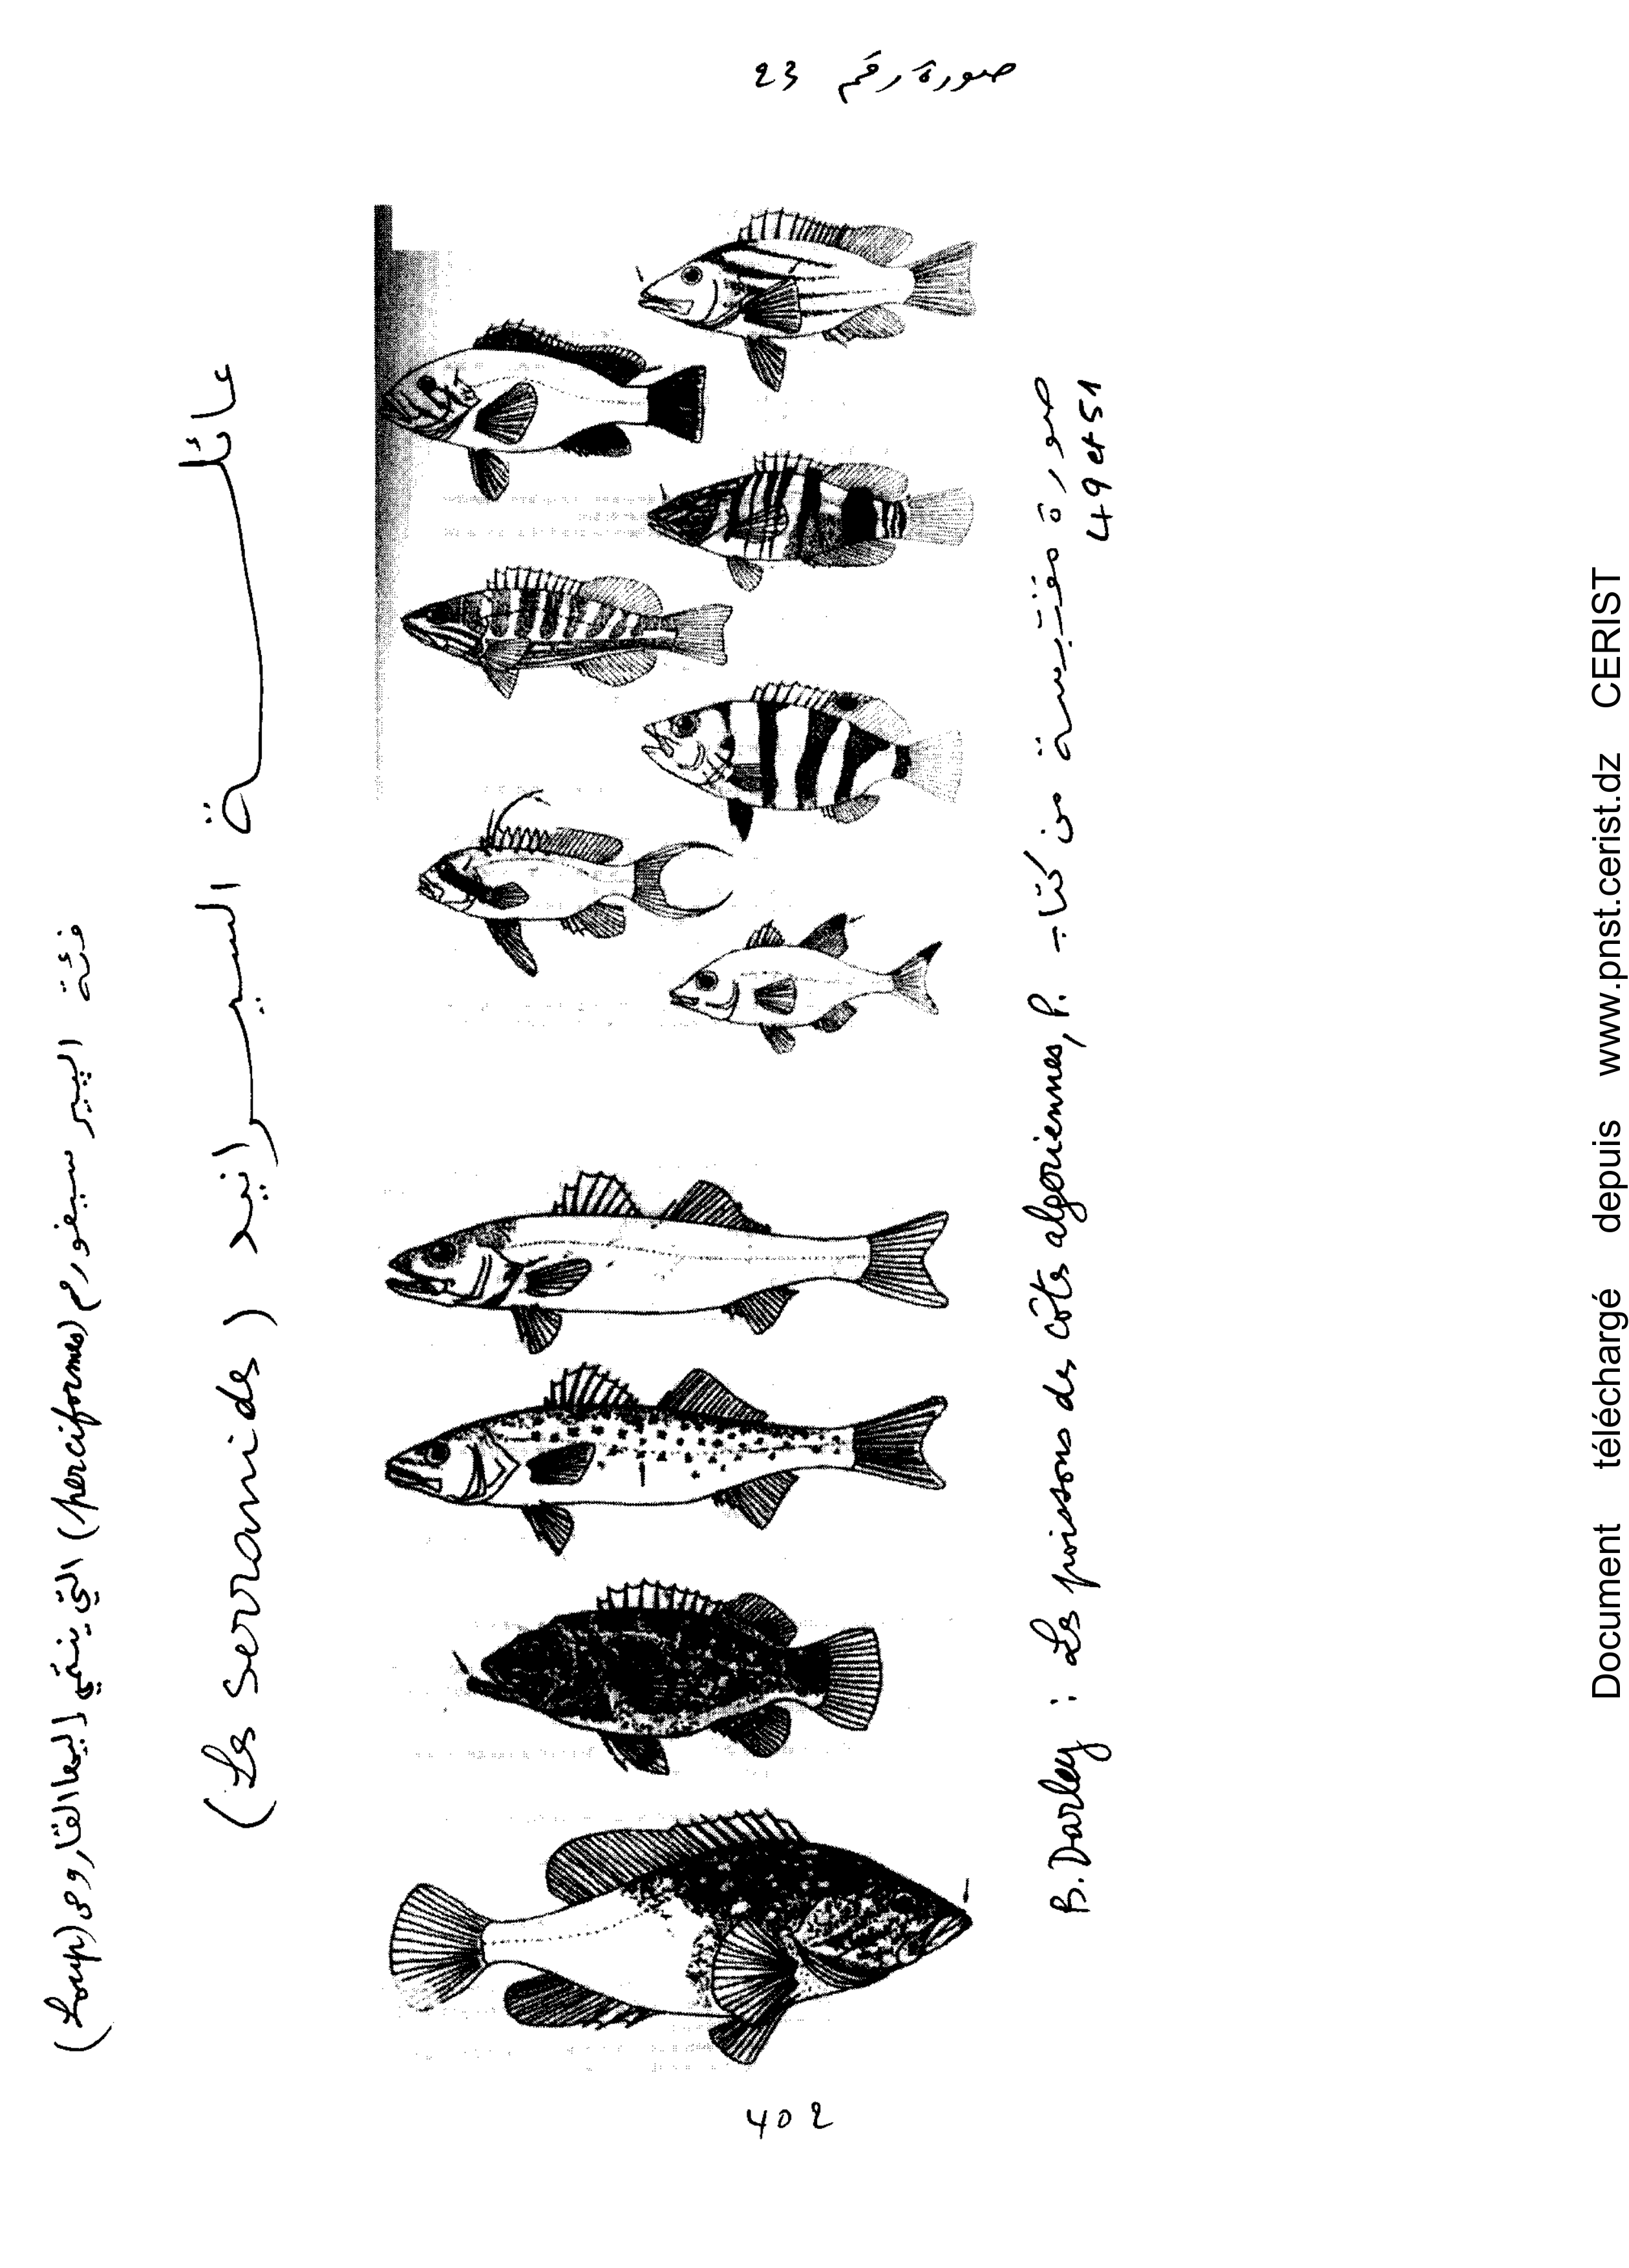 صورة رقم 23
فئة البيرسيفورم (perciformes) التي ينتمي إليها القاروص (Loup)
عائلة السيرانيد (Les Serranidés)
صورة مقتبسة من كتاب B. Darley : Les poissons des côtes algeriennes, P.
49 et 51
402
Document téléchargé depuis www.pnst.cerist.dz CERIST